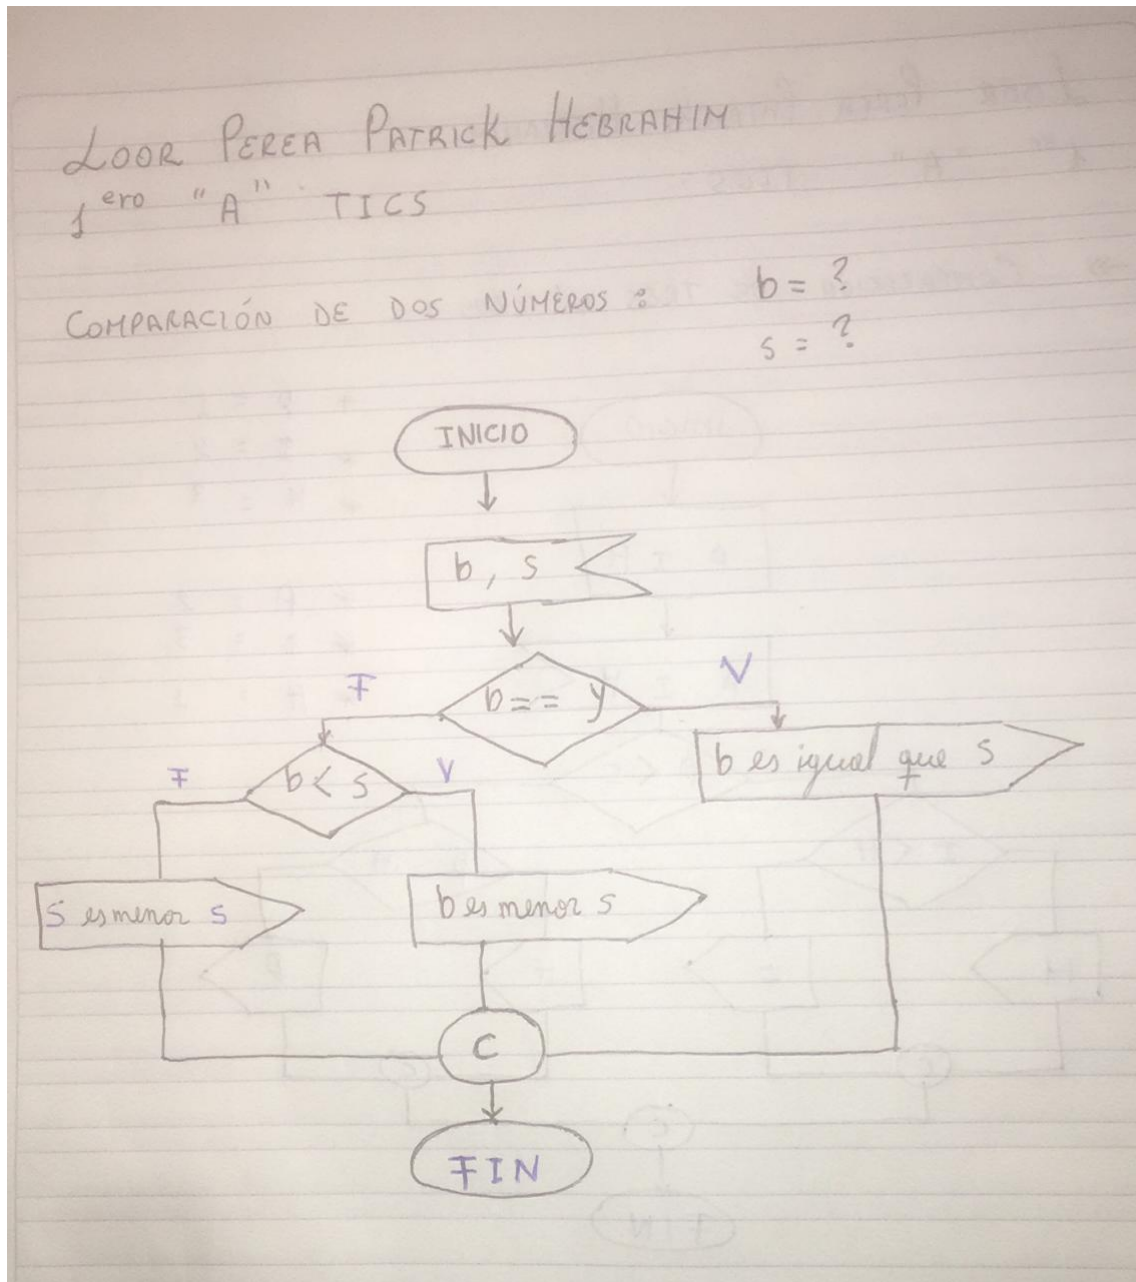 LOOR PEREA PATRICK HEBRAHIM
1ero "A" TICS
COMPARACIÓN DE DOS NÚMEROS: b = ?
s = ?
INICIO
b, s
F b == y V
F b < s V b es igual que s
s es menor s b es menor s
C
FIN